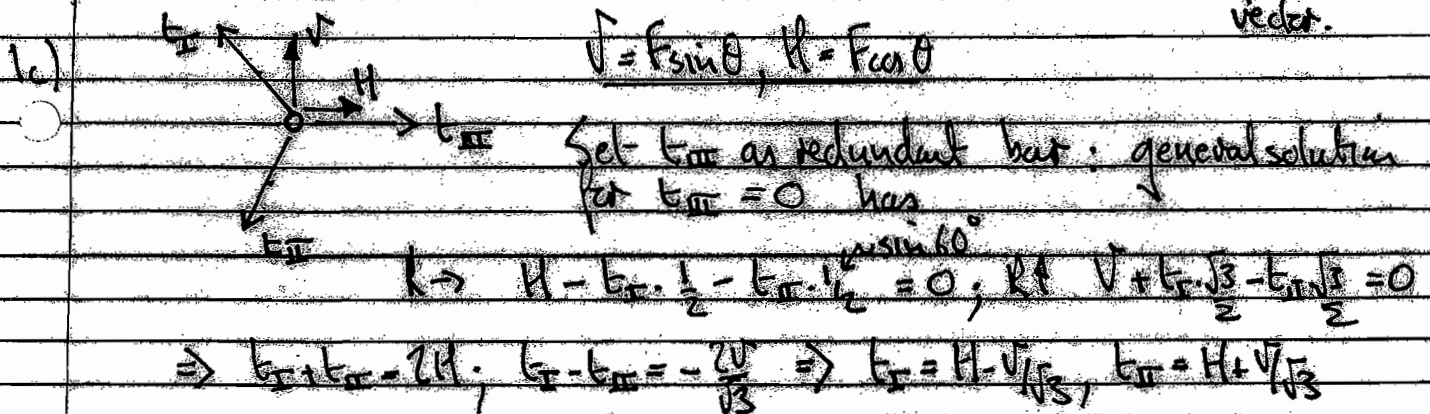 vector.
1c) t_I V H t_III t_II
V = F sinθ, H = F cosθ
Set t_III as redundant bar: general solution
for t_III = 0 has
sin 60°
R→ H - t_I · 1/2 - t_II · 1/2 = 0; R↑ V + t_I · √3/2 - t_II · √3/2 = 0
⇒ t_I + t_II = 2H; t_I - t_II = -2V/√3 ⇒ t_I = H - V/√3, t_II = H + V/√3